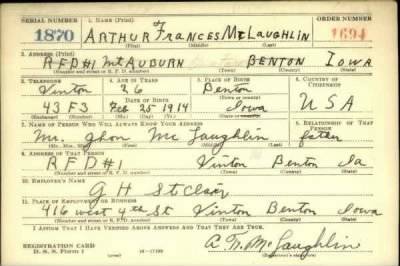 SERIAL NUMBER 1. NAME (Print) ORDER NUMBER
1870 ARTHUR FRANCES McLAUGHLIN 1694
(First) (Middle) (Last)
2. ADDRESS (Print)
RFD#1 Mt AUBURN BENTON IOWA
(Number and street or R. F. D. number) (Town) (County) (State)
3. TELEPHONE 4. AGE IN YEARS 5. PLACE OF BIRTH 6. COUNTRY OF CITIZENSHIP
Vinton 26 Benton
DATE OF BIRTH (Town or county)
43 F 3 Feb 25 1914 Iowa USA
(Exchange) (Number) (Mo.) (Day) (Yr.) (State or country)
7. NAME OF PERSON WHO WILL ALWAYS KNOW YOUR ADDRESS 8. RELATIONSHIP OF THAT PERSON
Mr. Jhon Mc Laughlin father
(Mr., Mrs., Miss) (First) (Middle) (Last)
9. ADDRESS OF THAT PERSON
RFD#1 Vinton Benton Ia
(Number and street or R. F. D. number) (Town) (County) (State)
10. EMPLOYER'S NAME
G H St Clair
11. PLACE OF EMPLOYMENT OR BUSINESS
416 west 4th St Vinton Benton Iowa
(Number and street or R. F. D. number) (Town) (County) (State)
I AFFIRM THAT I HAVE VERIFIED ABOVE ANSWERS AND THAT THEY ARE TRUE.
REGISTRATION CARD
D. S. S. Form 1 16-17105 McLaughlin